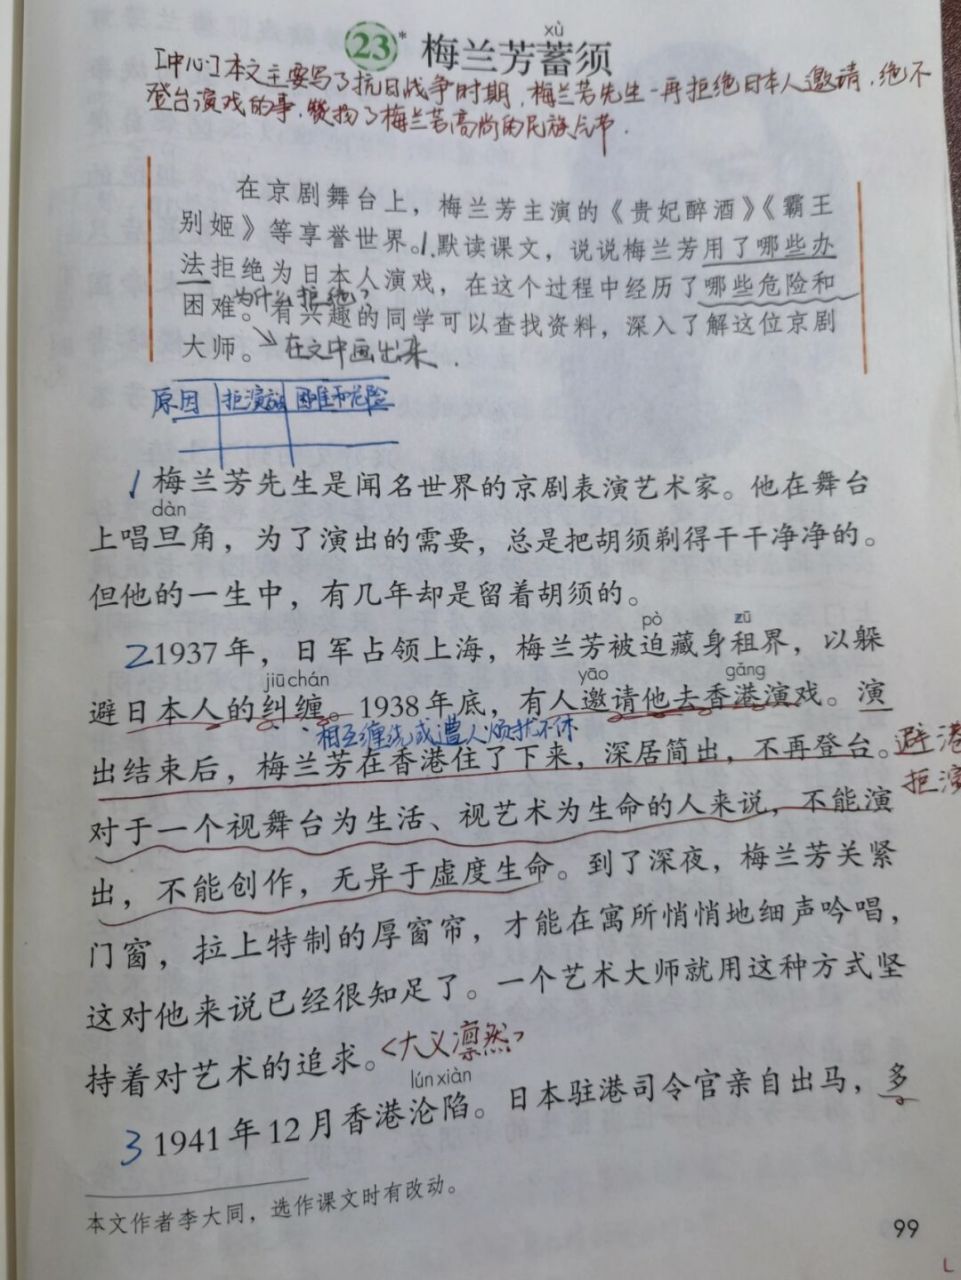 xù
23* 梅兰芳蓄须
[中心]本文主要写了抗日战争时期,梅兰芳先生一再拒绝日本人邀请,绝不
登台演戏的事.赞扬了梅兰芳高尚的民族气节.
在京剧舞台上，梅兰芳主演的《贵妃醉酒》《霸王
别姬》等享誉世界。1.默读课文，说说梅兰芳用了哪些办
法拒绝为日本人演戏，在这个过程中经历了哪些危险和
为什么拒绝?
困难。有兴趣的同学可以查找资料，深入了解这位京剧
大师。 在文中画出来.
原因 拒演办法 困难和危险
1 梅兰芳先生是闻名世界的京剧表演艺术家。他在舞台
dàn
上唱旦角，为了演出的需要，总是把胡须剃得干干净净的。
但他的一生中，有几年却是留着胡须的。
pò zū
2 1937年，日军占领上海，梅兰芳被迫藏身租界，以躲
jiū chán yāo gǎng
避日本人的纠缠。1938年底，有人邀请他去香港演戏。演
相互缠绕或遭人烦扰不休
出结束后，梅兰芳在香港住了下来，深居简出，不再登台。 避港
拒演
对于一个视舞台为生活、视艺术为生命的人来说，不能演
出，不能创作，无异于虚度生命。到了深夜，梅兰芳关紧
门窗，拉上特制的厚窗帘，才能在寓所悄悄地细声吟唱，
这对他来说已经很知足了。一个艺术大师就用这种方式坚
持着对艺术的追求。<大义凛然>
lún xiàn
3 1941年12月香港沦陷。日本驻港司令官亲自出马，多
本文作者李大同，选作课文时有改动。
99